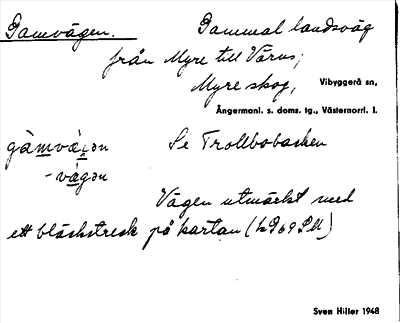 Gamvägen. Gammal landsväg
från Myre till Värns,
Myre skog, Vibyggerå sn,
Ångermanl. s. doms. tg., Västernorrl. l.
gàmvæ̀gən Se Trollbobacken
-vægən
Vägen utmärkt med
ett bläckstreck på kartan
Sven Hiller 1948